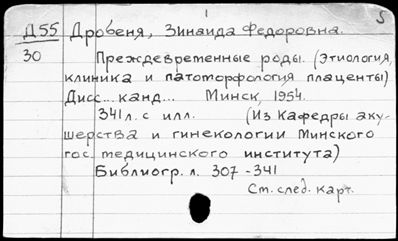 5
Д55 Дробеня, Зинаида Федоровна.
30 Преждевременные роды. (Этиология,
клиника и патоморфология плаценты)
Дисс... канд... Минск, 1954.
341 л. с илл. (Из Кафедры аку-
шерства и гинекологии Минского
гос. медицинского института)
Библиогр. л. 307-341
См. след. карт.